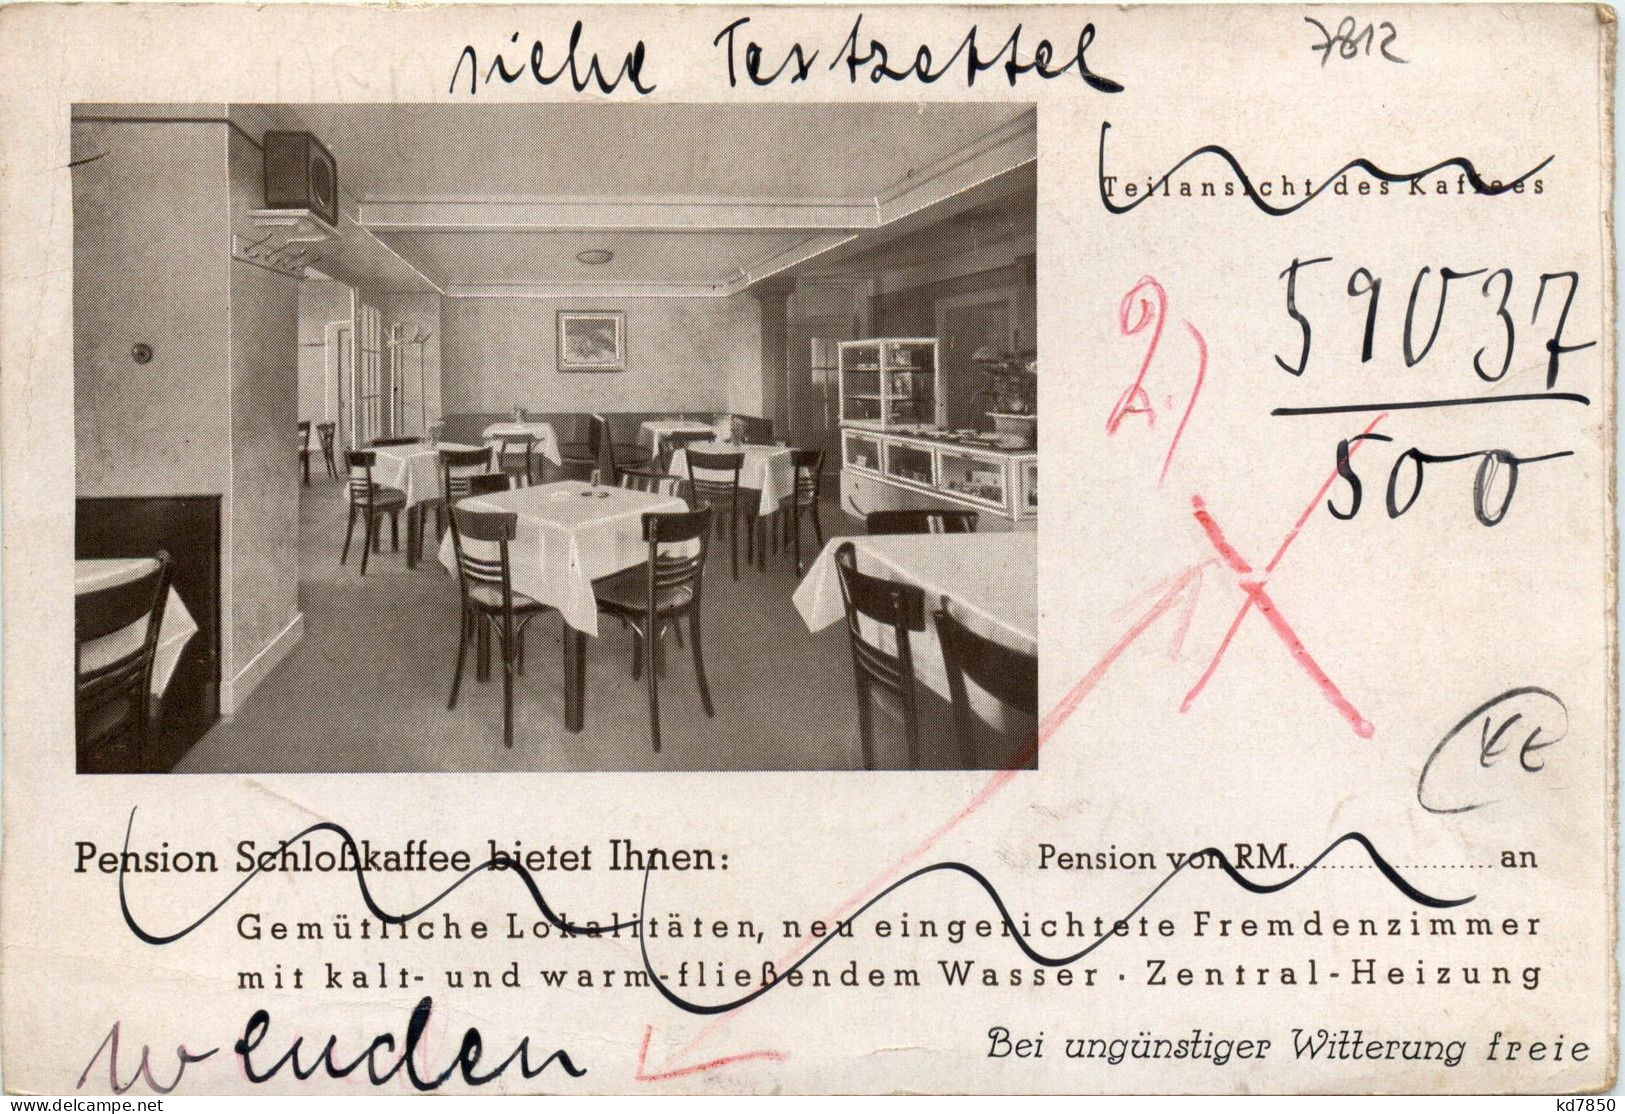 siehe Textzettel
7812
Teilansicht des Kaffees
2.)
59037
500
Pension Schloßkaffee bietet Ihnen:
Pension von RM. an
Gemütliche Lokalitäten, neu eingerichtete Fremdenzimmer
mit kalt- und warm-fließendem Wasser · Zentral-Heizung
wenden
Bei ungünstiger Witterung freie
delcampe.net
kd7850